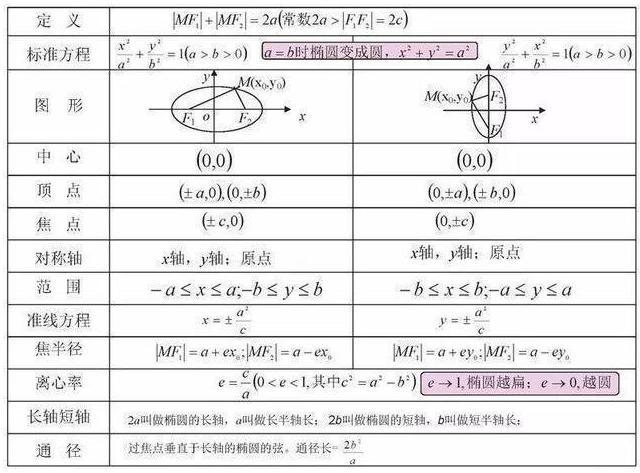 定 义 |MF₁|+|MF₂|=2a(常数2a>|F₁F₂|=2c)
标准方程 x²/a²+y²/b²=1(a>b>0) a=b时椭圆变成圆，x²+y²=a² y²/a²+x²/b²=1(a>b>0)
图 形 y M(x₀,y₀) F₁ o F₂ x y M(x₀,y₀) F₂ F₁ x
中 心 (0,0) (0,0)
顶 点 (±a,0),(0,±b) (0,±a),(±b,0)
焦 点 (±c,0) (0,±c)
对称轴 x轴，y轴；原点 x轴，y轴；原点
范 围 -a≤x≤a;-b≤y≤b -b≤x≤b;-a≤y≤a
准线方程 x=±a²/c y=±a²/c
焦半径 |MF₁|=a+ex₀;|MF₂|=a-ex₀ |MF₁|=a+ey₀;|MF₂|=a-ey₀
离心率 e=c/a(0<e<1,其中c²=a²-b²) e→1,椭圆越扁；e→0,越圆
长轴短轴 2a叫做椭圆的长轴，a叫做长半轴长；2b叫做椭圆的短轴，b叫做短半轴长；
通 径 过焦点垂直于长轴的椭圆的弦。通径长=2b²/a